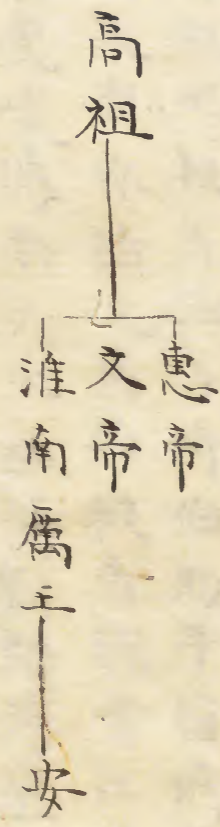 高祖
惠帝
文帝
淮南厲王
安